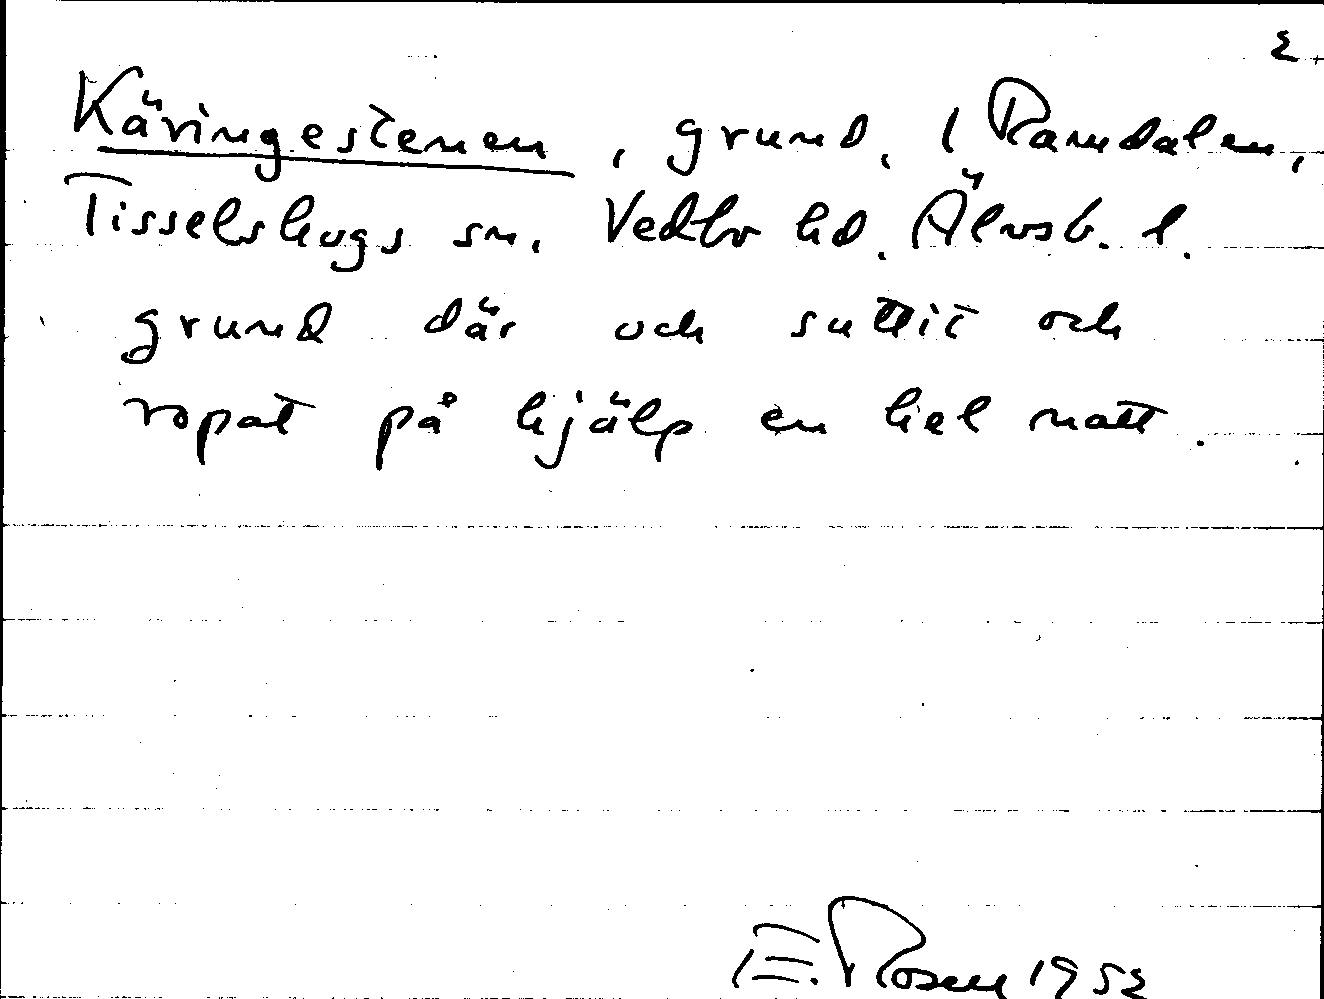 2
Käringestenen, grund, i Ramdalen,
Tisselskogs sn. Vedbo hd. Älvsb. l.
grund där och suttit och
ropat på hjälp en hel natt.
E. Rosen 1952